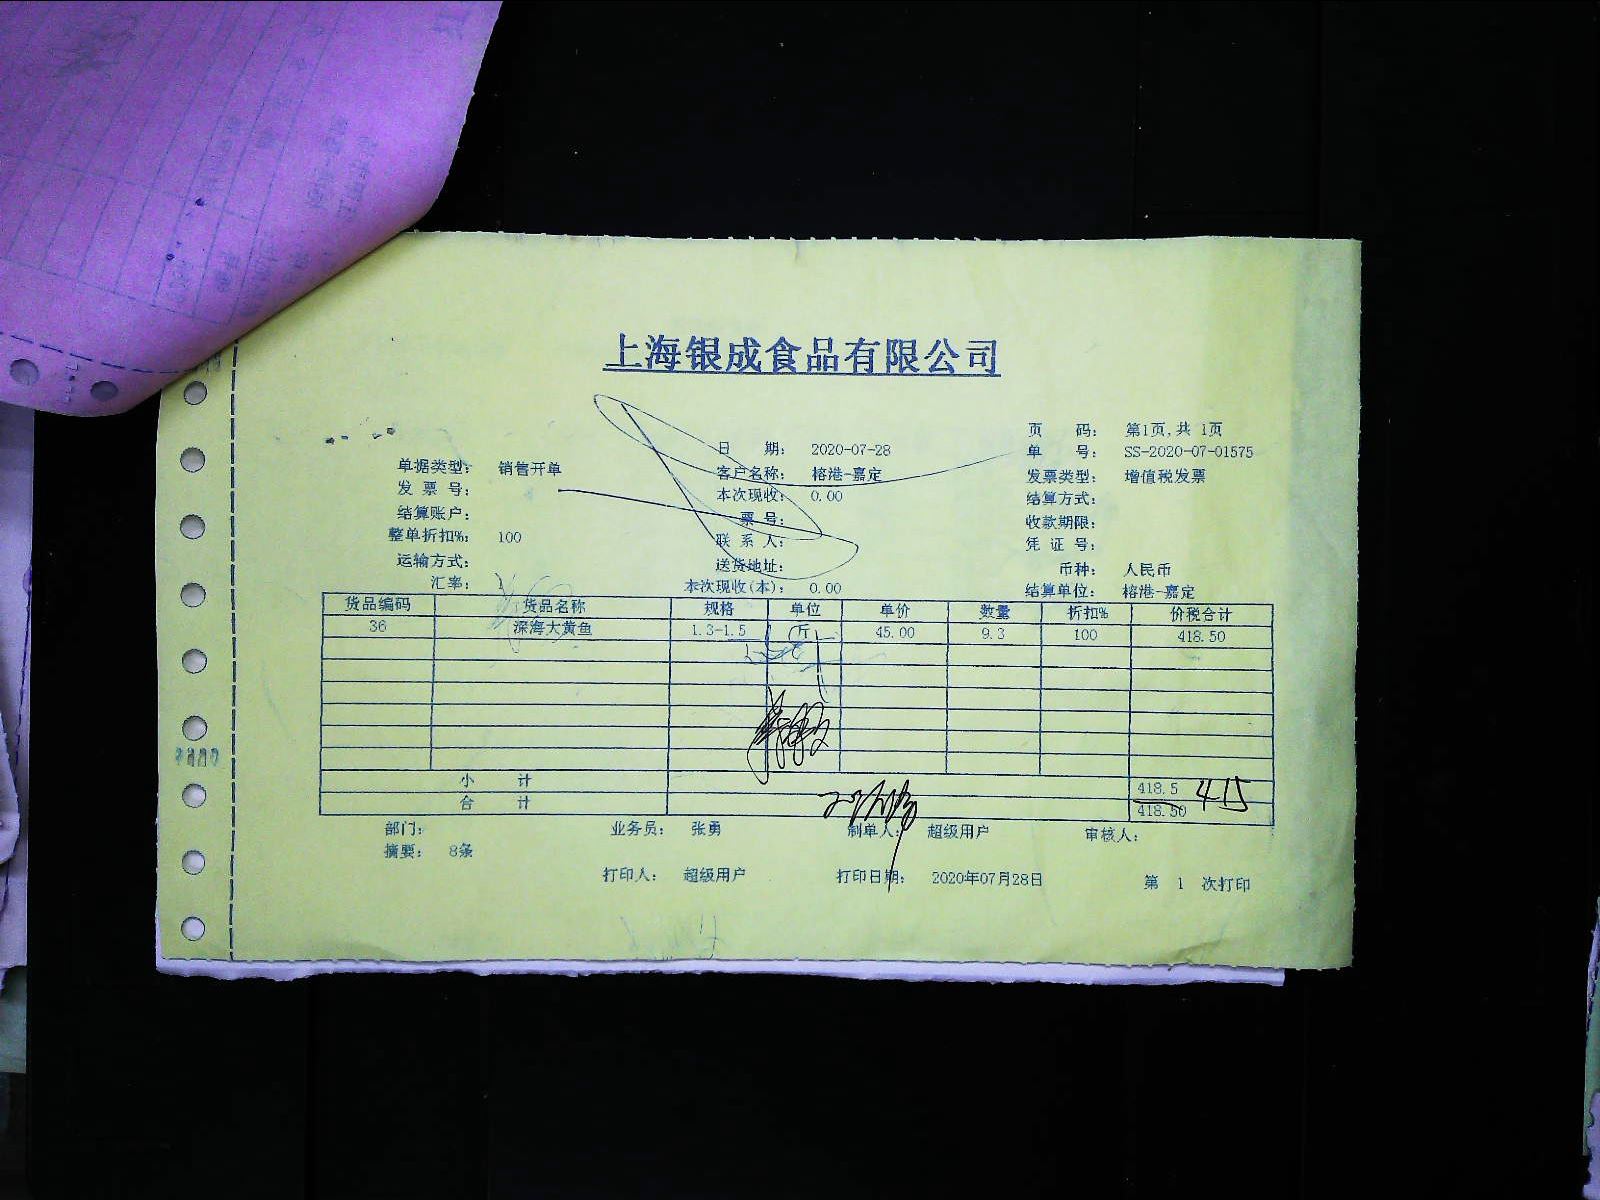 上海银成食品有限公司
页 码： 第1页,共 1页
日 期： 2020-07-28 单 号： SS-2020-07-01575
单据类型： 销售开单 客户名称： 榕港-嘉定 发票类型： 增值税发票
发 票 号： 本次现收： 0.00 结算方式：
结算账户： 票 号： 收款期限：
整单折扣%： 100 联 系 人： 凭 证 号：
运输方式： 送货地址： 币种： 人民币
汇率： 本次现收(本)： 0.00 结算单位： 榕港-嘉定
货品编码 货品名称 规格 单位 单价 数量 折扣% 价税合计
36 深海大黄鱼 1.3-1.5 斤 45.00 9.3 100 418.50
小 计 418.5 415
合 计 418.50
部门： 业务员： 张勇 制单人： 超级用户 审核人：
摘要： 8条
打印人： 超级用户 打印日期： 2020年07月28日 第 1 次打印